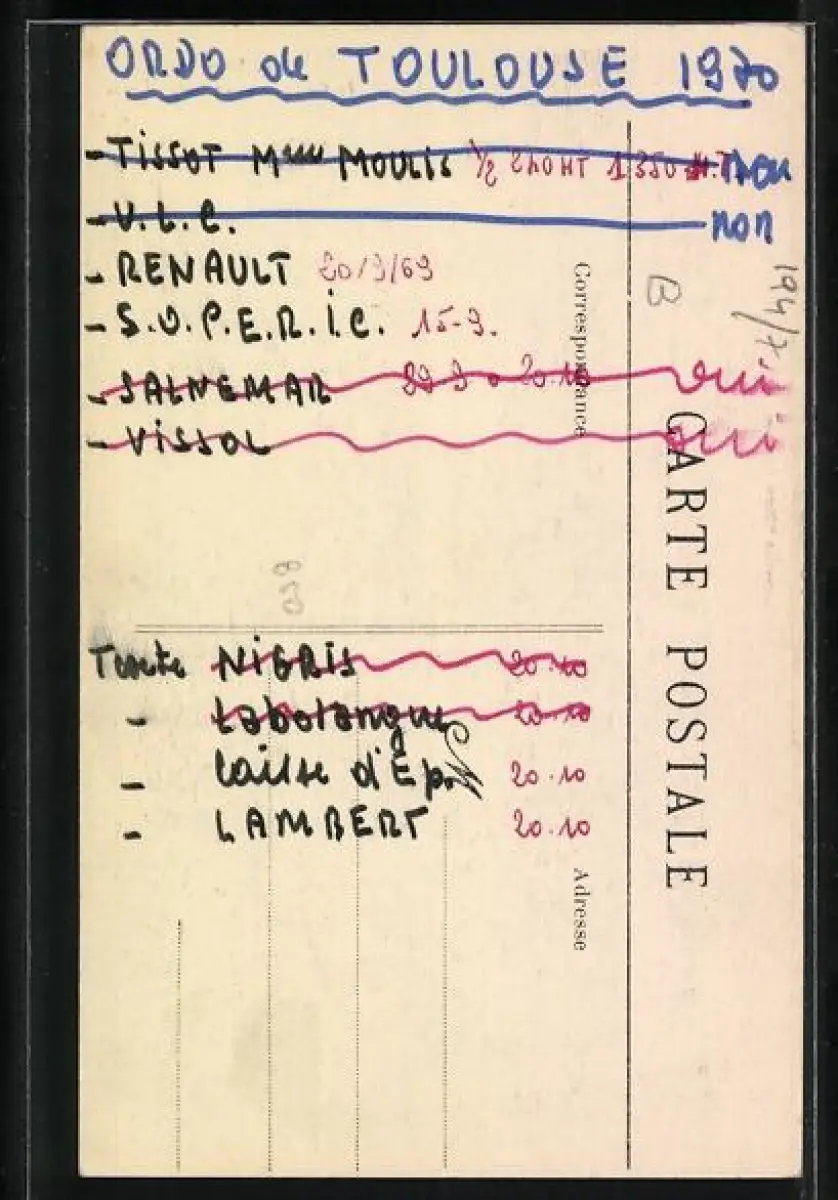 ORDO de TOULOUSE 1970
- TISSOT MOULIS 1/2 2h0HT 1350
- V.L.C. non
- RENAULT 20/9/69
- S.O.P.E.R.I.C. 15-9.
- SALNEMAR 20.10 oui
- VISSOL oui
NIGRIS 20.10
- Labolangue 20.10
- Caisse d'Ep. 20.10
- LAMBERT 20.10
Correspondance
Adresse
CARTE POSTALE
B
194/7